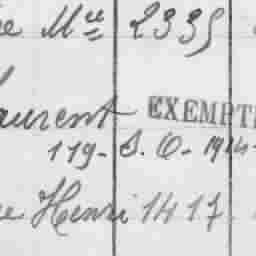 Mce 2335
aurent EXEMPT
119. S. O. 1914
e Henri 1417